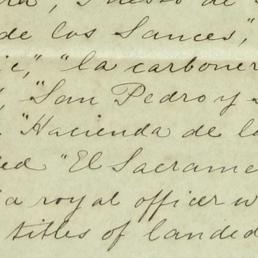 de los Sances,"
"la carboner
"San Pedro y
"Hacienda de lo
ed "El Sacrame
a royal officer w
titles of landed